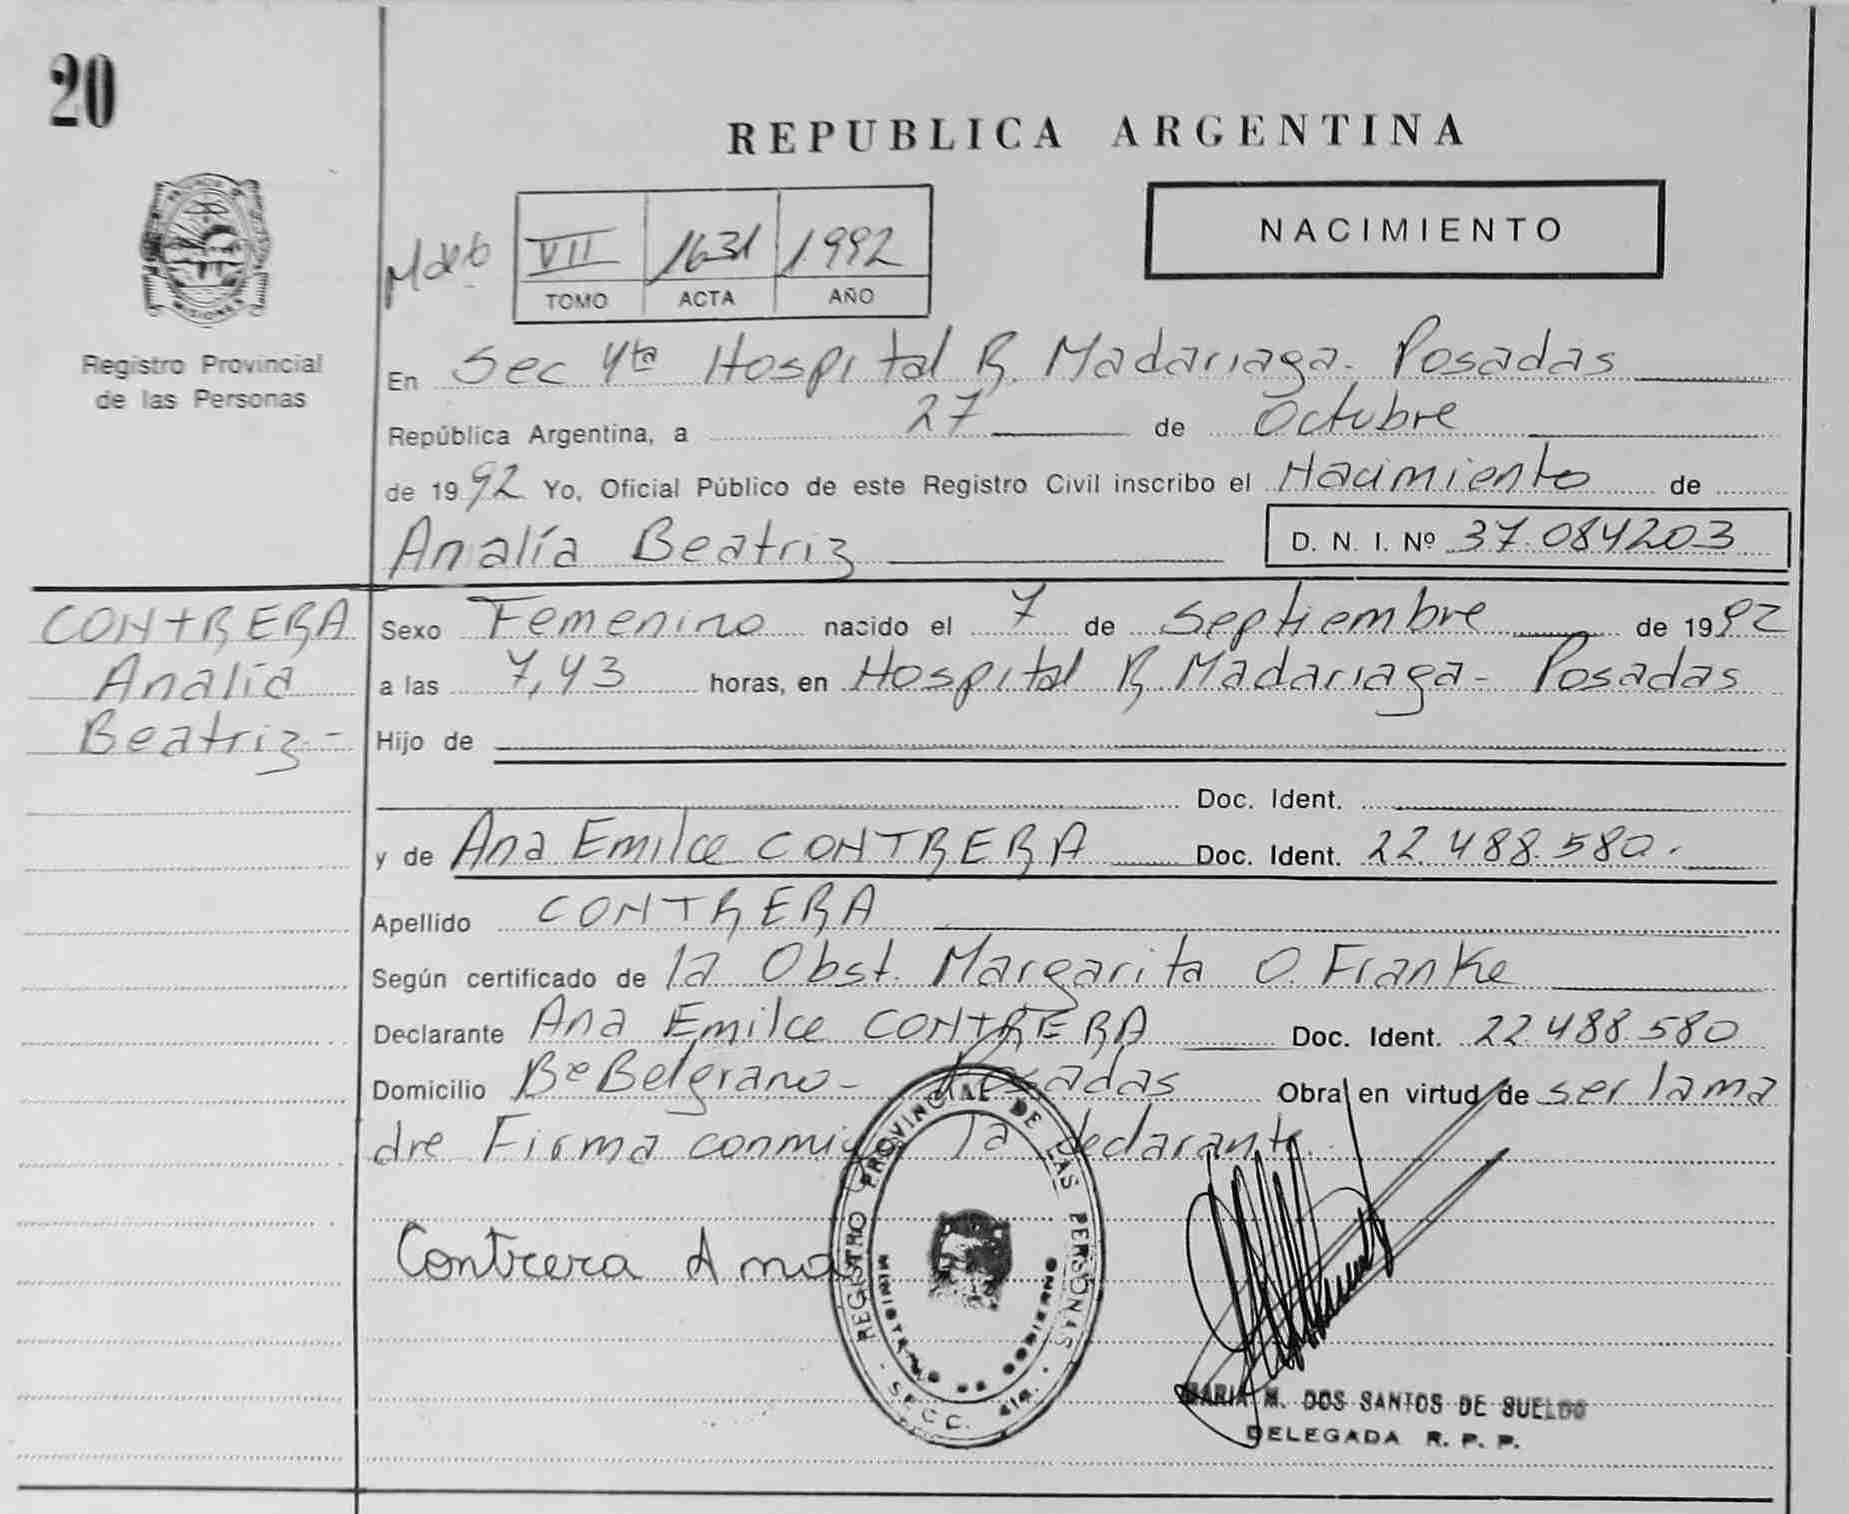 20
REPUBLICA ARGENTINA
NACIMIENTO
VII 1631 1992
TOMO ACTA AÑO
MISIONES
Registro Provincial
de las Personas
En Sec 4ta Hospital R. Madariaga - Posadas
República Argentina, a 27 de Octubre
de 1992 Yo, Oficial Público de este Registro Civil inscribo el Nacimiento de
Analía Beatriz D. N. I. Nº 37.084203
CONTRERA
Analía
Beatriz -
Sexo Femenino nacido el 7 de Septiembre de 1992
a las 7,43 horas, en Hospital R. Madariaga - Posadas
Hijo de
Doc. Ident.
y de Ana Emilce CONTRERA Doc. Ident. 22.488.580.
Apellido CONTRERA
Según certificado de la Obst. Margarita O. Franke
Declarante Ana Emilce CONTRERA Doc. Ident. 22.488.580
Domicilio Bº Belgrano - Posadas Obra en virtud de ser la ma
dre Firma conmigo la declarante.
Contrera Ana
REGISTRO PROVINCIAL DE LAS PERSONAS
MINISTERIO DE GOBIERNO
SECC. 4ta.
MARIA M. DOS SANTOS DE SUELDO
DELEGADA R. P. P.